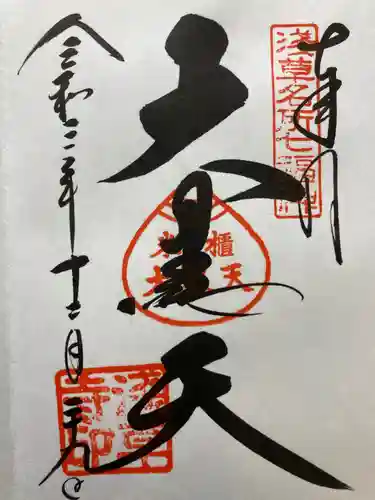 奉拝
浅草名所七福神
大黒天
米櫃
令和二年十二月二十九日
浅草寺印